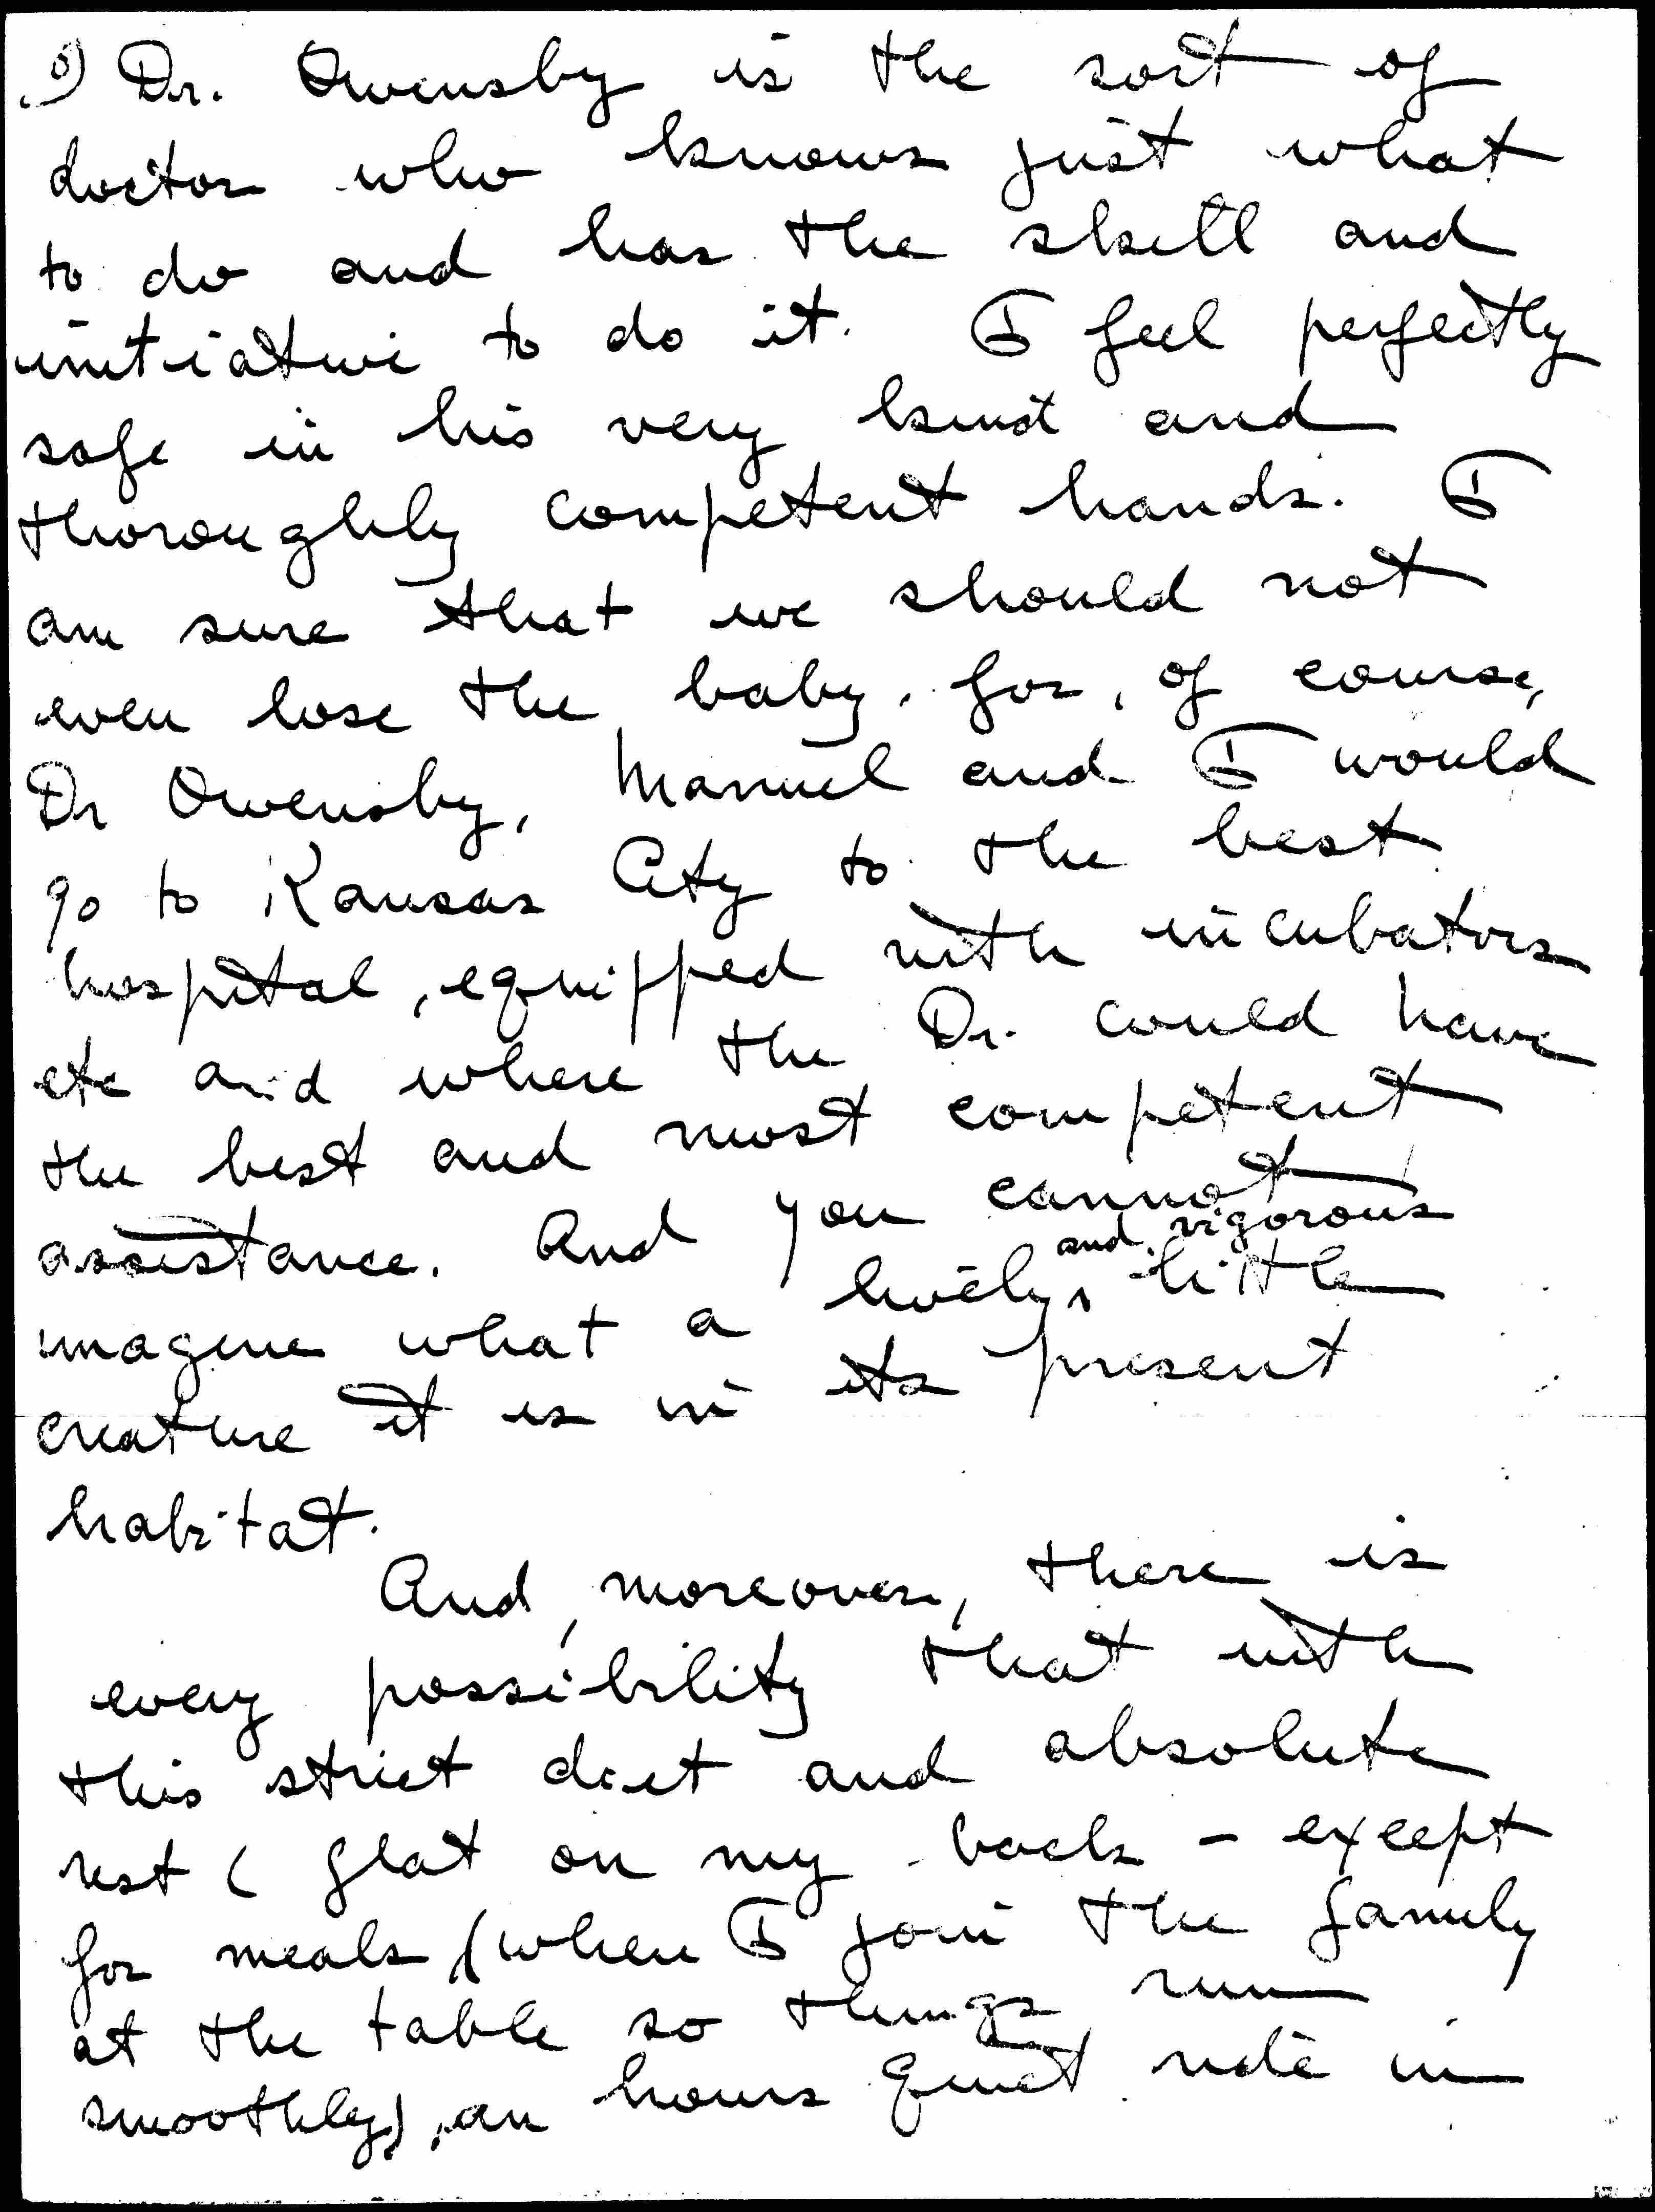 5) Dr. Owensby is the sort of
doctor who knows just what
to do and has the skill and
initiative to do it. I feel perfectly
safe in his very kind and
thoroughly competent hands. I
am sure that we should not
even lose the baby, for, of course,
Dr Owensby, Manuel and I would
go to Kansas City to the best
hospital, equipped with incubators
etc and where the Dr. could have
the best and most competent
assistance. And you cannot
imagine what a lively and vigorous little
creature it is in its present
habitat.
And, moreover, there is
every possibility that with
this strict diet and absolute
rest ( flat on my back - except
for meals (when I join the family
at the table so things run
smoothly), an hours quiet ride in